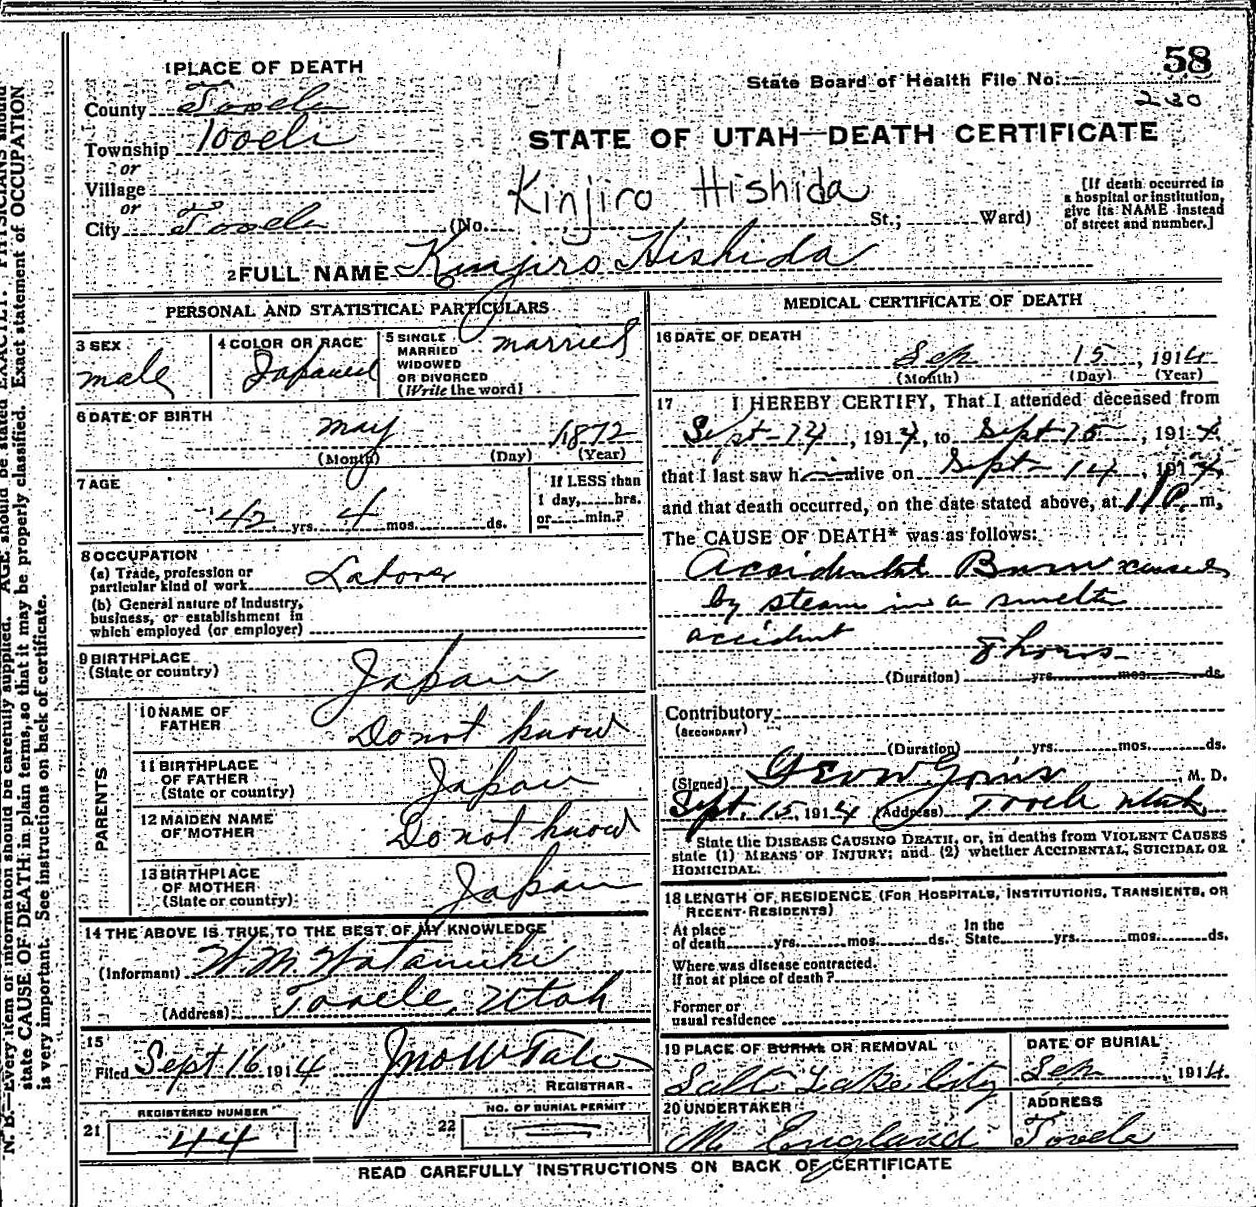 58
State Board of Health File No.
230
1 PLACE OF DEATH
County Tooele
Township Tooele
or
Village
or
City Tooele
STATE OF UTAH—DEATH CERTIFICATE
Kinjiro Hishida
(No. St.; Ward)
[If death occurred in a hospital or institution, give its NAME instead of street and number.]
2 FULL NAME Kinjiro Hishida
PERSONAL AND STATISTICAL PARTICULARS
3 SEX
male
4 COLOR OR RACE
Japanese
5 SINGLE
MARRIED
WIDOWED
OR DIVORCED
(Write the word)
married
6 DATE OF BIRTH
May 1872
(Month) (Day) (Year)
7 AGE
42 yrs. 4 mos. ds.
If LESS than
1 day, hrs.
or min.?
8 OCCUPATION
(a) Trade, profession or
particular kind of work Laborer
(b) General nature of Industry,
business, or establishment in
which employed (or employer)
9 BIRTHPLACE
(State or country)
Japan
PARENTS
10 NAME OF
FATHER
Do not know
11 BIRTHPLACE
OF FATHER
(State or country)
Japan
12 MAIDEN NAME
OF MOTHER
Do not know
13 BIRTHPLACE
OF MOTHER
(State or country)
Japan
14 THE ABOVE IS TRUE TO THE BEST OF MY KNOWLEDGE
(Informant) W.M. Watanuki
(Address) Tooele, Utah
15
Filed Sept 16 1914
REGISTRAR.
REGISTERED NUMBER
21 44
NO. OF BURIAL PERMIT
22
MEDICAL CERTIFICATE OF DEATH
16 DATE OF DEATH
Sep 15, 1914
(Month) (Day) (Year)
17 I HEREBY CERTIFY, That I attended deceased from
Sept 14, 1914, to Sept 15, 1914,
that I last saw h im alive on Sept 14, 1914,
and that death occurred, on the date stated above, at 11 P. m,
The CAUSE OF DEATH* was as follows:
Accidental Burn caused
by steam in a smelter
accident
8 hours
(Duration) yrs. mos. ds.
Contributory
(SECONDARY)
(Duration) yrs. mos. ds.
(Signed) M. D.
Sept. 15, 1914 (Address) Tooele Utah
State the DISEASE CAUSING DEATH, or, in deaths from VIOLENT CAUSES
state (1) MEANS OF INJURY; and (2) whether ACCIDENTAL, SUICIDAL OR
HOMICIDAL.
18 LENGTH OF RESIDENCE (FOR HOSPITALS, INSTITUTIONS, TRANSIENTS, OR
RECENT RESIDENTS)
At place
of death yrs. mos. ds.
In the
State yrs. mos. ds.
Where was disease contracted.
If not at place of death?
Former or
usual residence
19 PLACE OF BURIAL OR REMOVAL
Salt Lake City
DATE OF BURIAL
Sep, 1914
20 UNDERTAKER
M. England
ADDRESS
Tooele
READ CAREFULLY INSTRUCTIONS ON BACK OF CERTIFICATE
N. B.—Every item of information should be carefully supplied. AGE should be stated EXACTLY. PHYSICIANS should
state CAUSE OF DEATH in plain terms, so that it may be properly classified. Exact statement of OCCUPATION
is very important. See instructions on back of certificate.